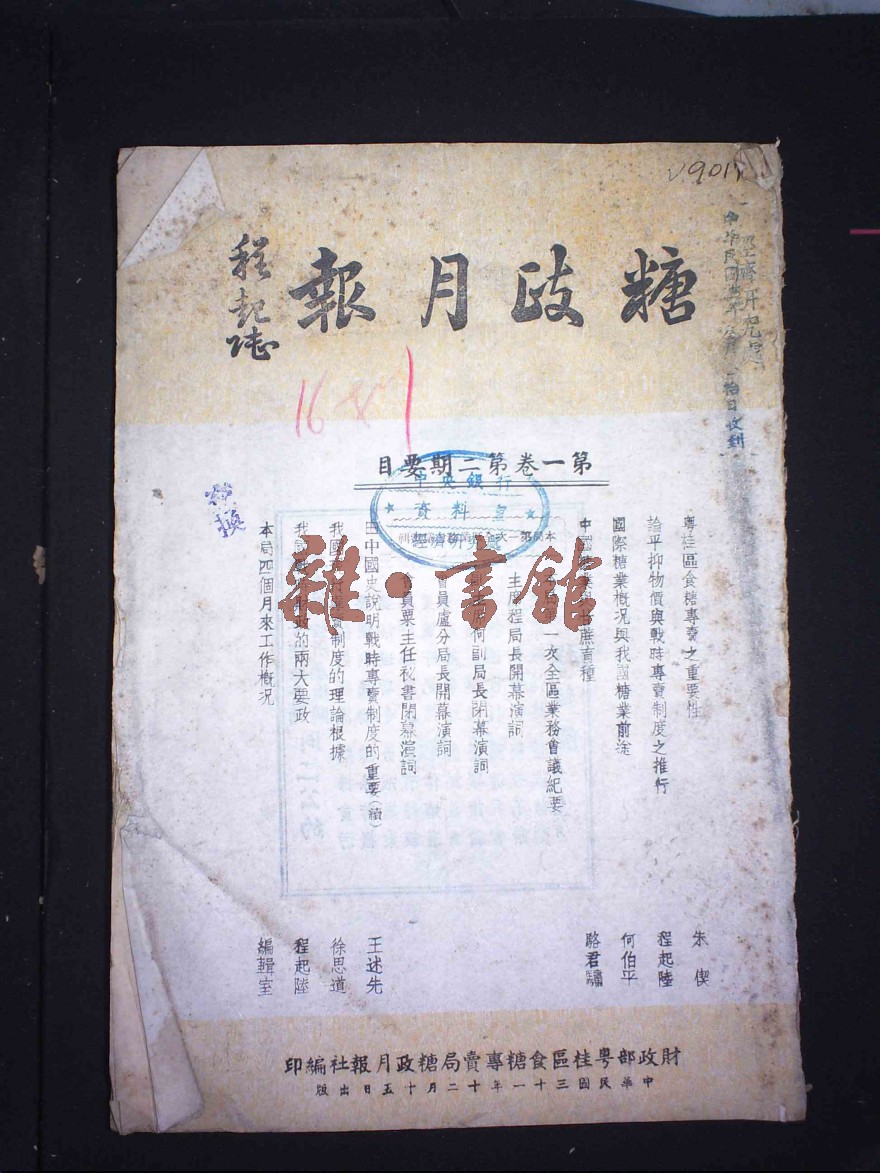 V901
糖政月報
程起陸
168
經濟研究處
中華民國
日收到
第一卷第二期要目
中央銀行
資料室
經濟研究處
粵桂區食糖專賣之重要性 朱偰
論平抑物價與戰時專賣制度之推行 程起陸
國際糖業概況與我國糖業前途 何伯平
中國糖業與甘蔗育種 駱君驌
一次全區業務會議紀要
主席程局長開幕演詞
何副局長閉幕演詞
會員盧分局長開幕演詞
會員粟主任秘書閉幕演詞
由中國史說明戰時專賣制度的重要(續) 王述先
我國 專賣制度的理論根據 徐思道
我 財政的兩大要政 程起陸
本局四個月來工作概况 編輯室
雜·書館
財政部粵桂區食糖專賣局糖政月報社編印
中華民國三十一年十二月十五日出版